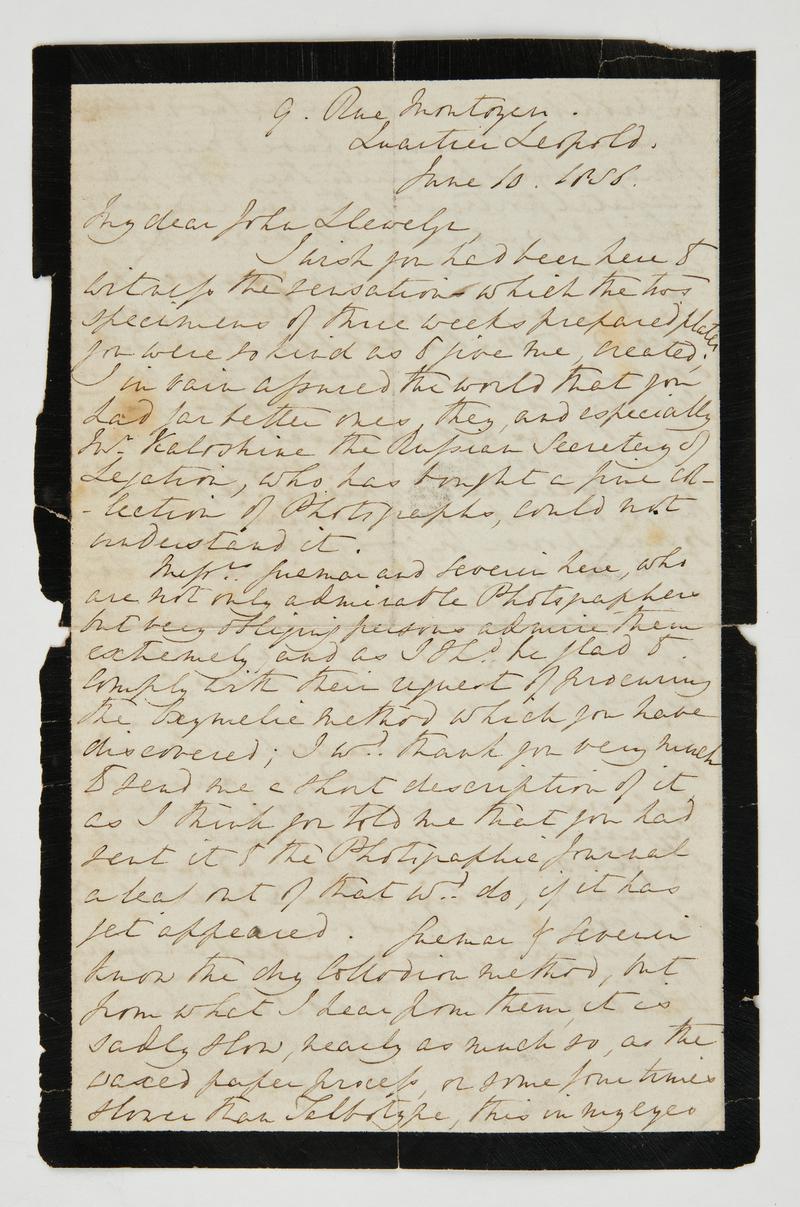 9. Rue Montoyer.
Quartier Leopold.
June 10. 1856.
My dear John Llewelyn,
I wish you had been here to
witness the sensation which the two
specimens of three weeks prepared plates
you were so kind as to give me, created.
I in vain assured the world that you
had far better ones, they, and especially
Mr. Kaloshine the Russian Secretary of
Legation, who has bought a fine col-
-lection of Photographs, could not
understand it.
Messrs. and Severin here, who
are not only admirable Photographers
but very obliging persons admire them
extremely, and as I Shd. be glad to
comply with their request of procuring
the Oxymelic method which you have
discovered; I wd. thank you very much
to send me a short description of it,
as I think you told me that you had
sent it to the Photographic Journal
a leaf out of that wd. do, if it has
yet appeared. & Severin
know the dry Collodion method, but
from what I hear from them, it is
sadly slow, nearly as much so, as the
waxed paper process, or some four times
slower than Talbotype, this in my eyes